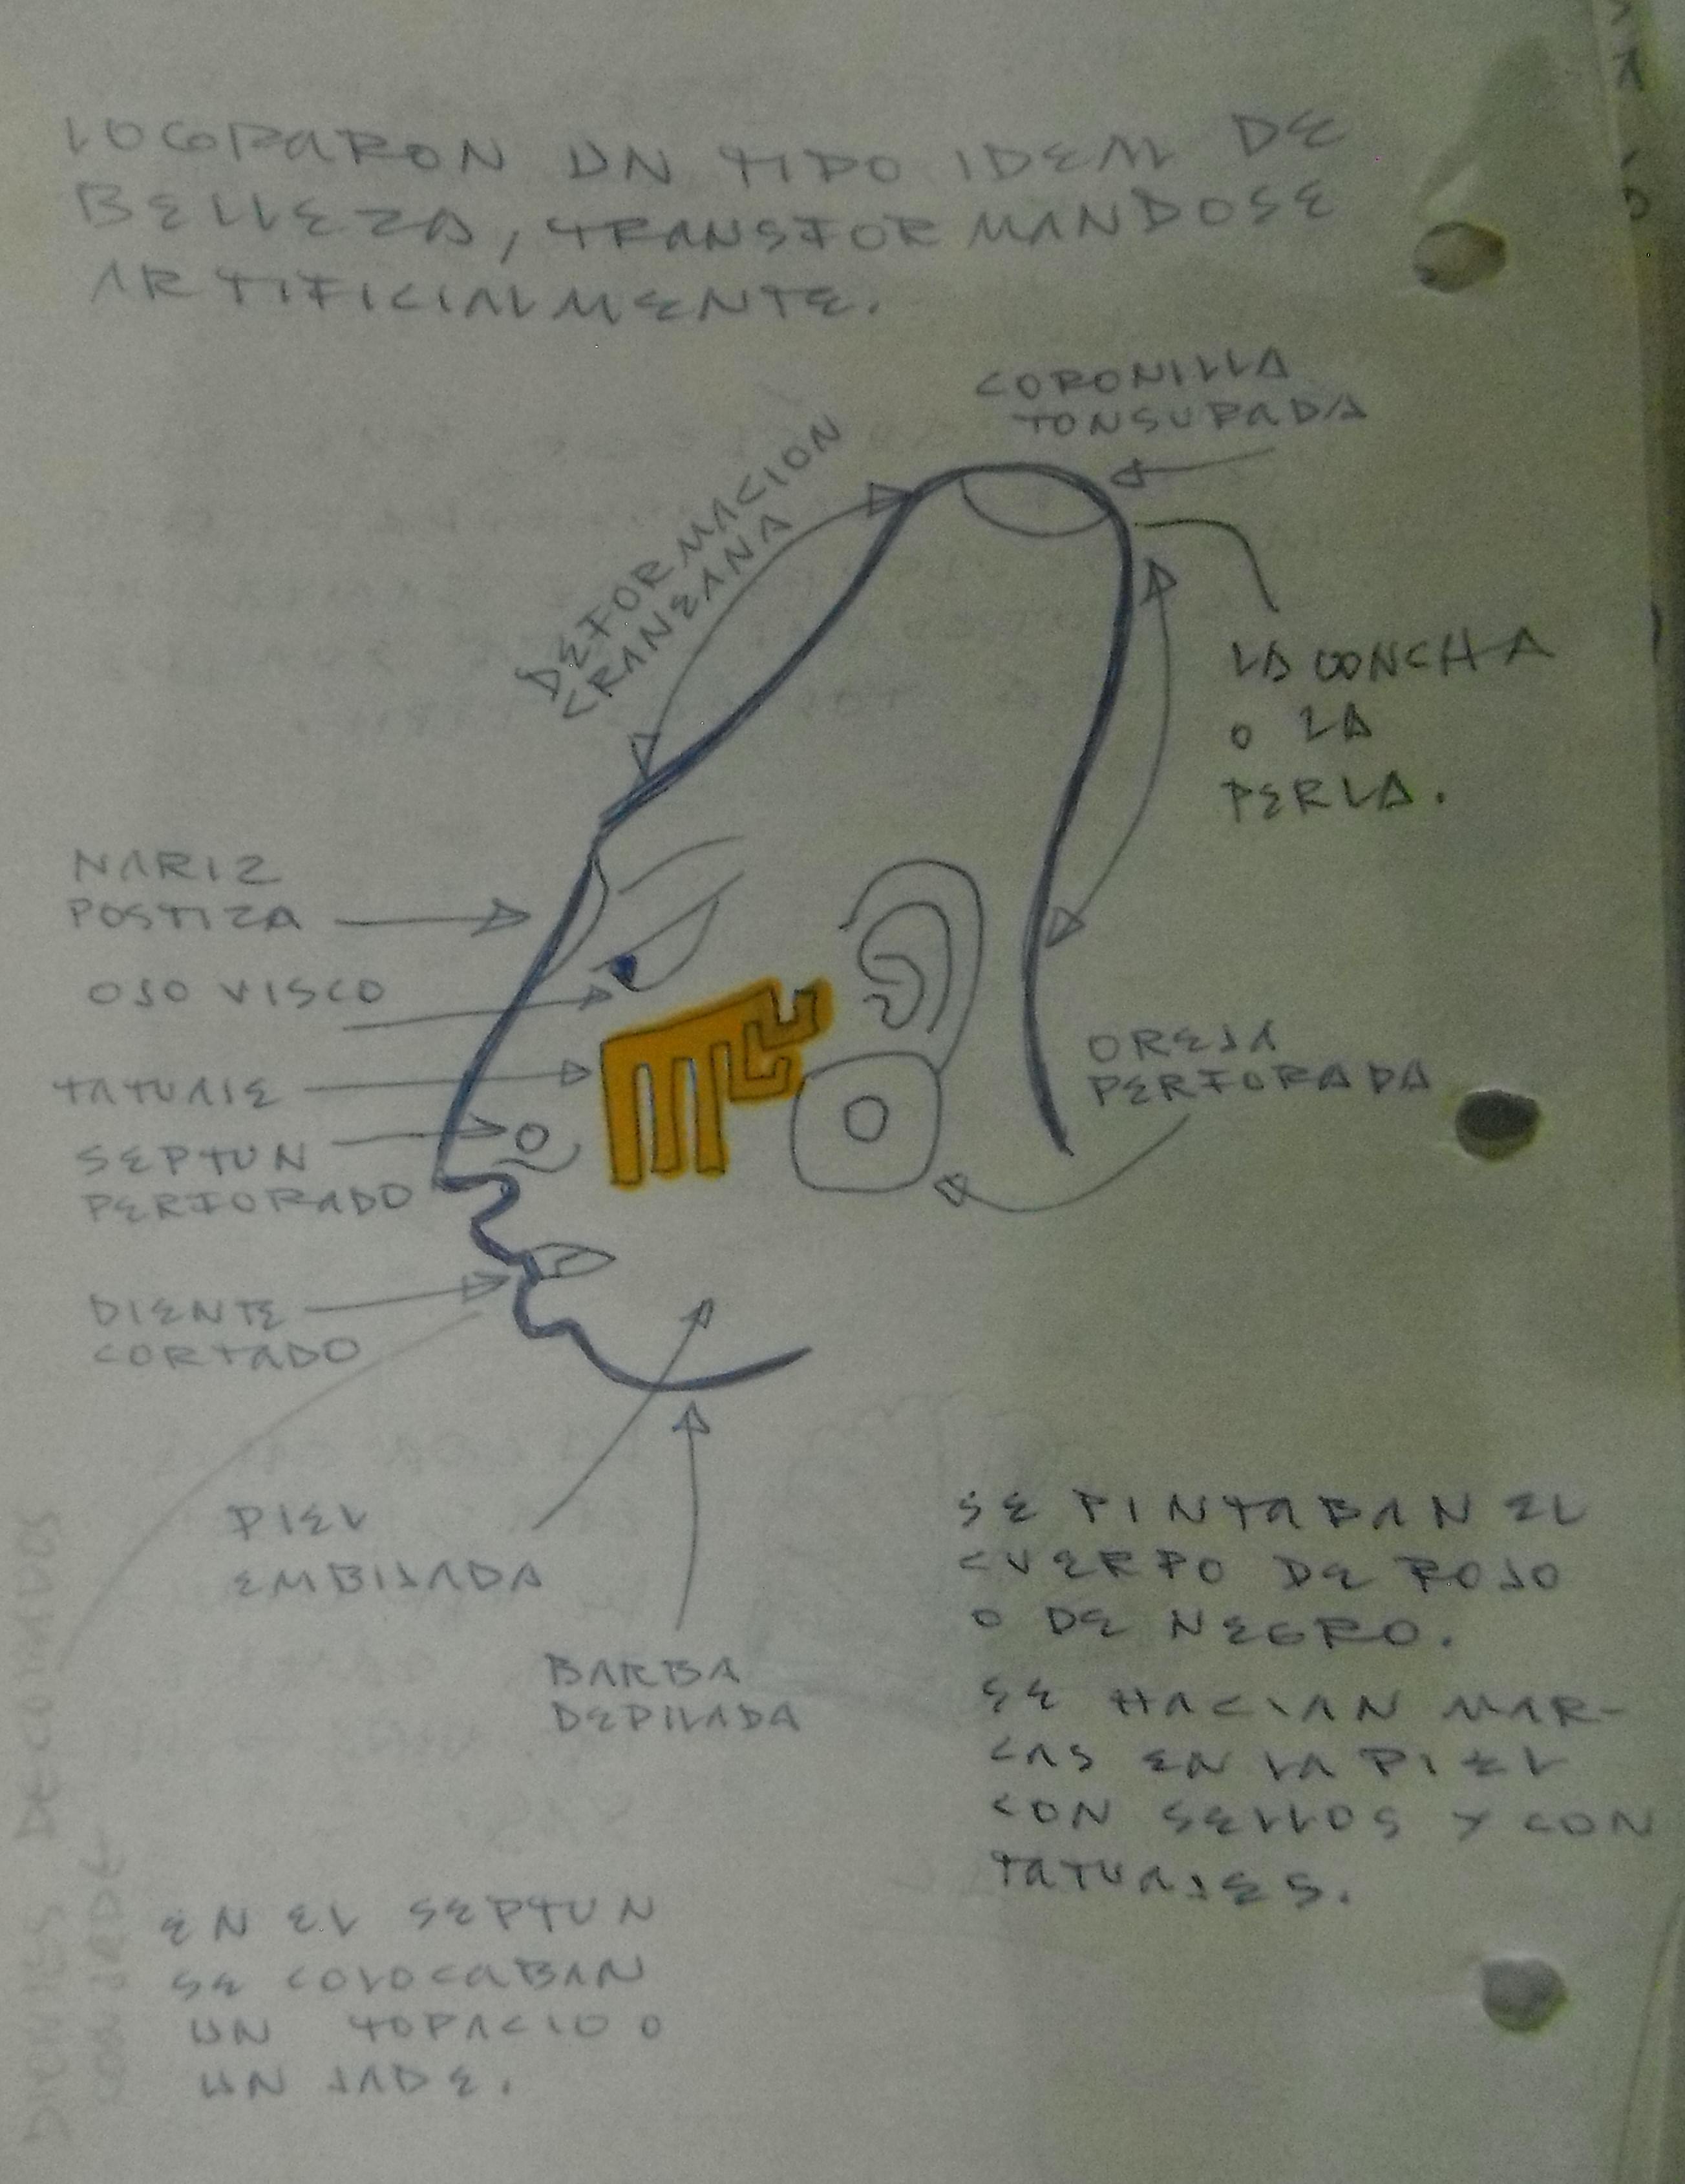 LOGRARON UN TIPO IDEAL DE
BELLEZA, TRANSFORMANDOSE
ARTIFICIALMENTE.
CORONILLA
TONSURADA
DEFORMACION
CRANEANA
LA CONCHA
O LA
PERLA.
NARIZ
POSTIZA
OJO VISCO
TATUAJE
SEPTUN
PERFORADO
OREJA
PERFORADA
DIENTE
CORTADO
PIEL
EMBIJADA
BARBA
DEPILADA
SE PINTABAN EL
CUERPO DE ROJO
O DE NEGRO.
SE HACIAN MAR-
CAS EN LA PIEL
CON SELLOS Y CON
TATUAJES.
EN EL SEPTUN
SE COLOCABAN
UN TOPACIO O
UN JADE.
DIENTES DECORADOS
CON JADE